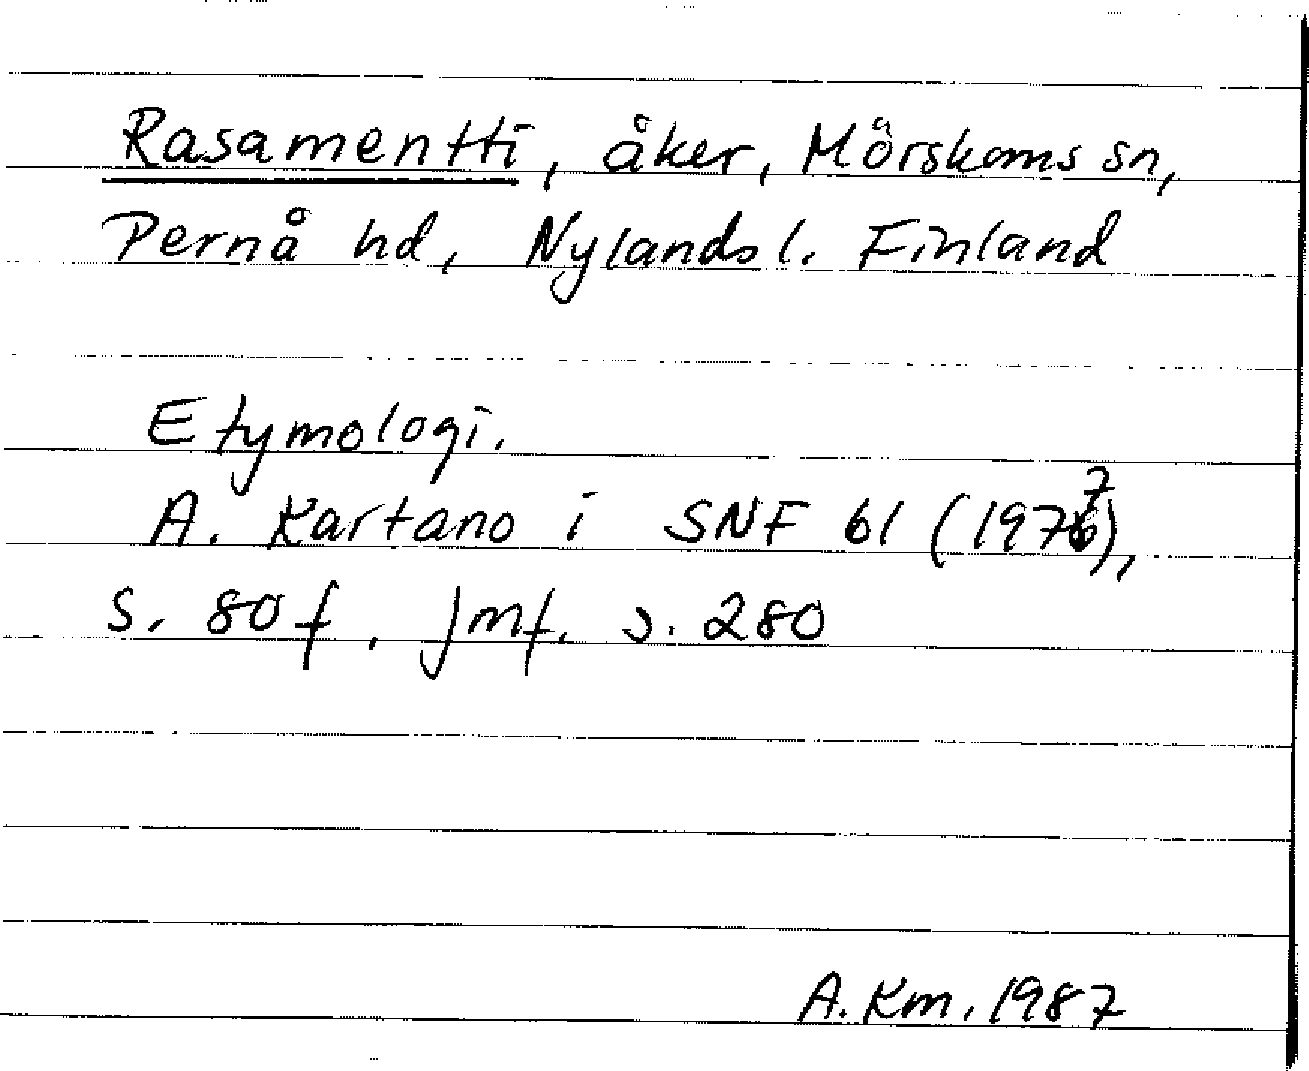 Rasamentti, åker, Mörskoms sn,
Pernå hd, Nylands l. Finland
Etymologi.
A. Kartano i SNF 61 (1977),
s. 80 f, jmf. s. 280
A. Km. 1987